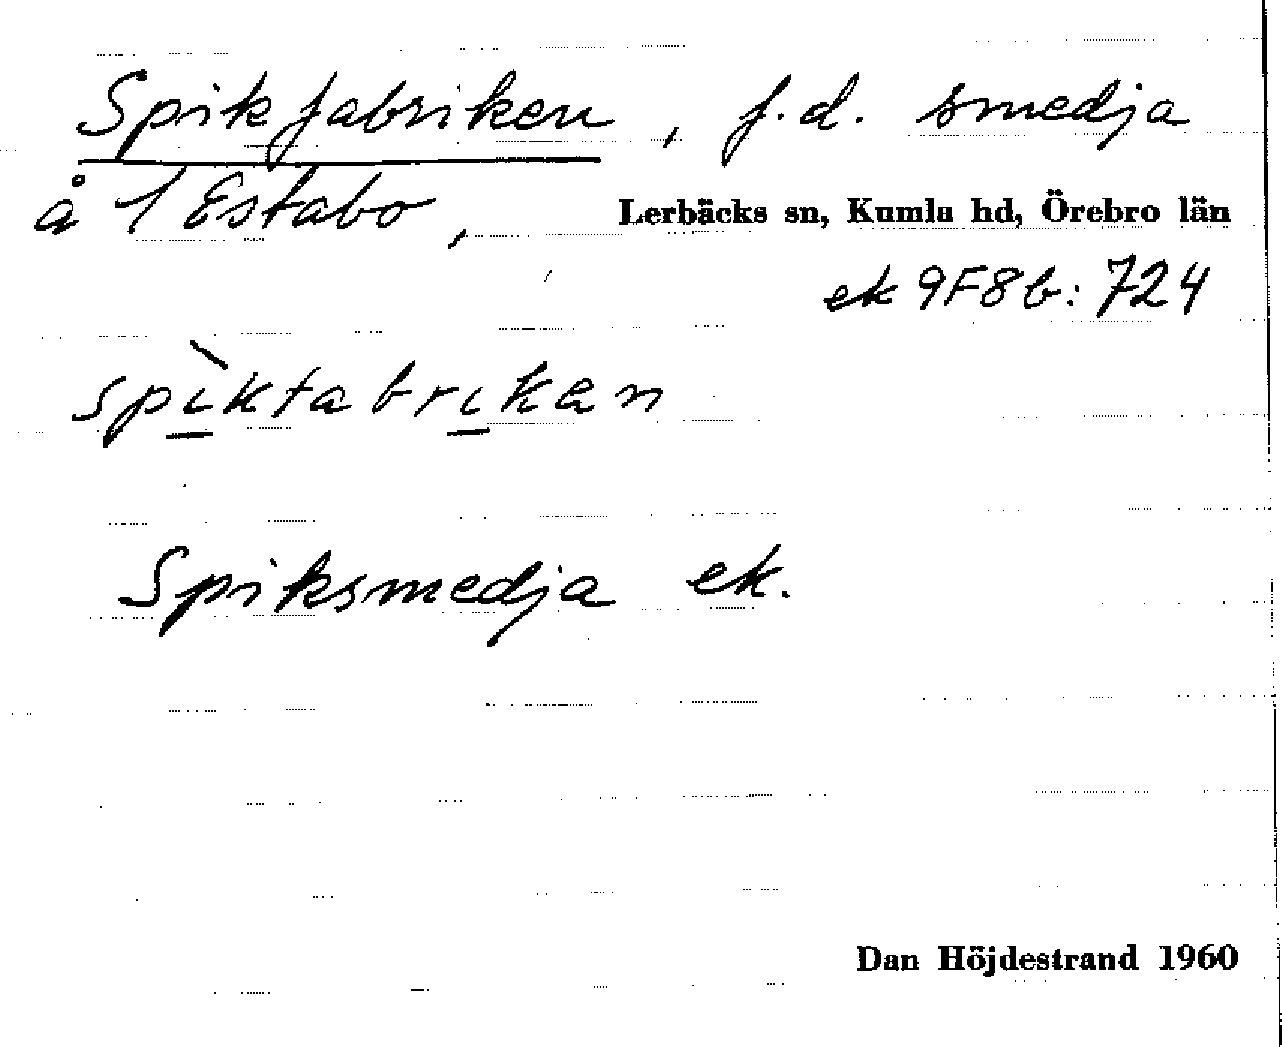 Spikfabriken, f.d. smedja
å 1 Estabo, Lerbäcks sn, Kumla hd, Örebro län
ek 9F8b: 724
spìkfabrikan
Spiksmedja ek.
Dan Höjdestrand 1960